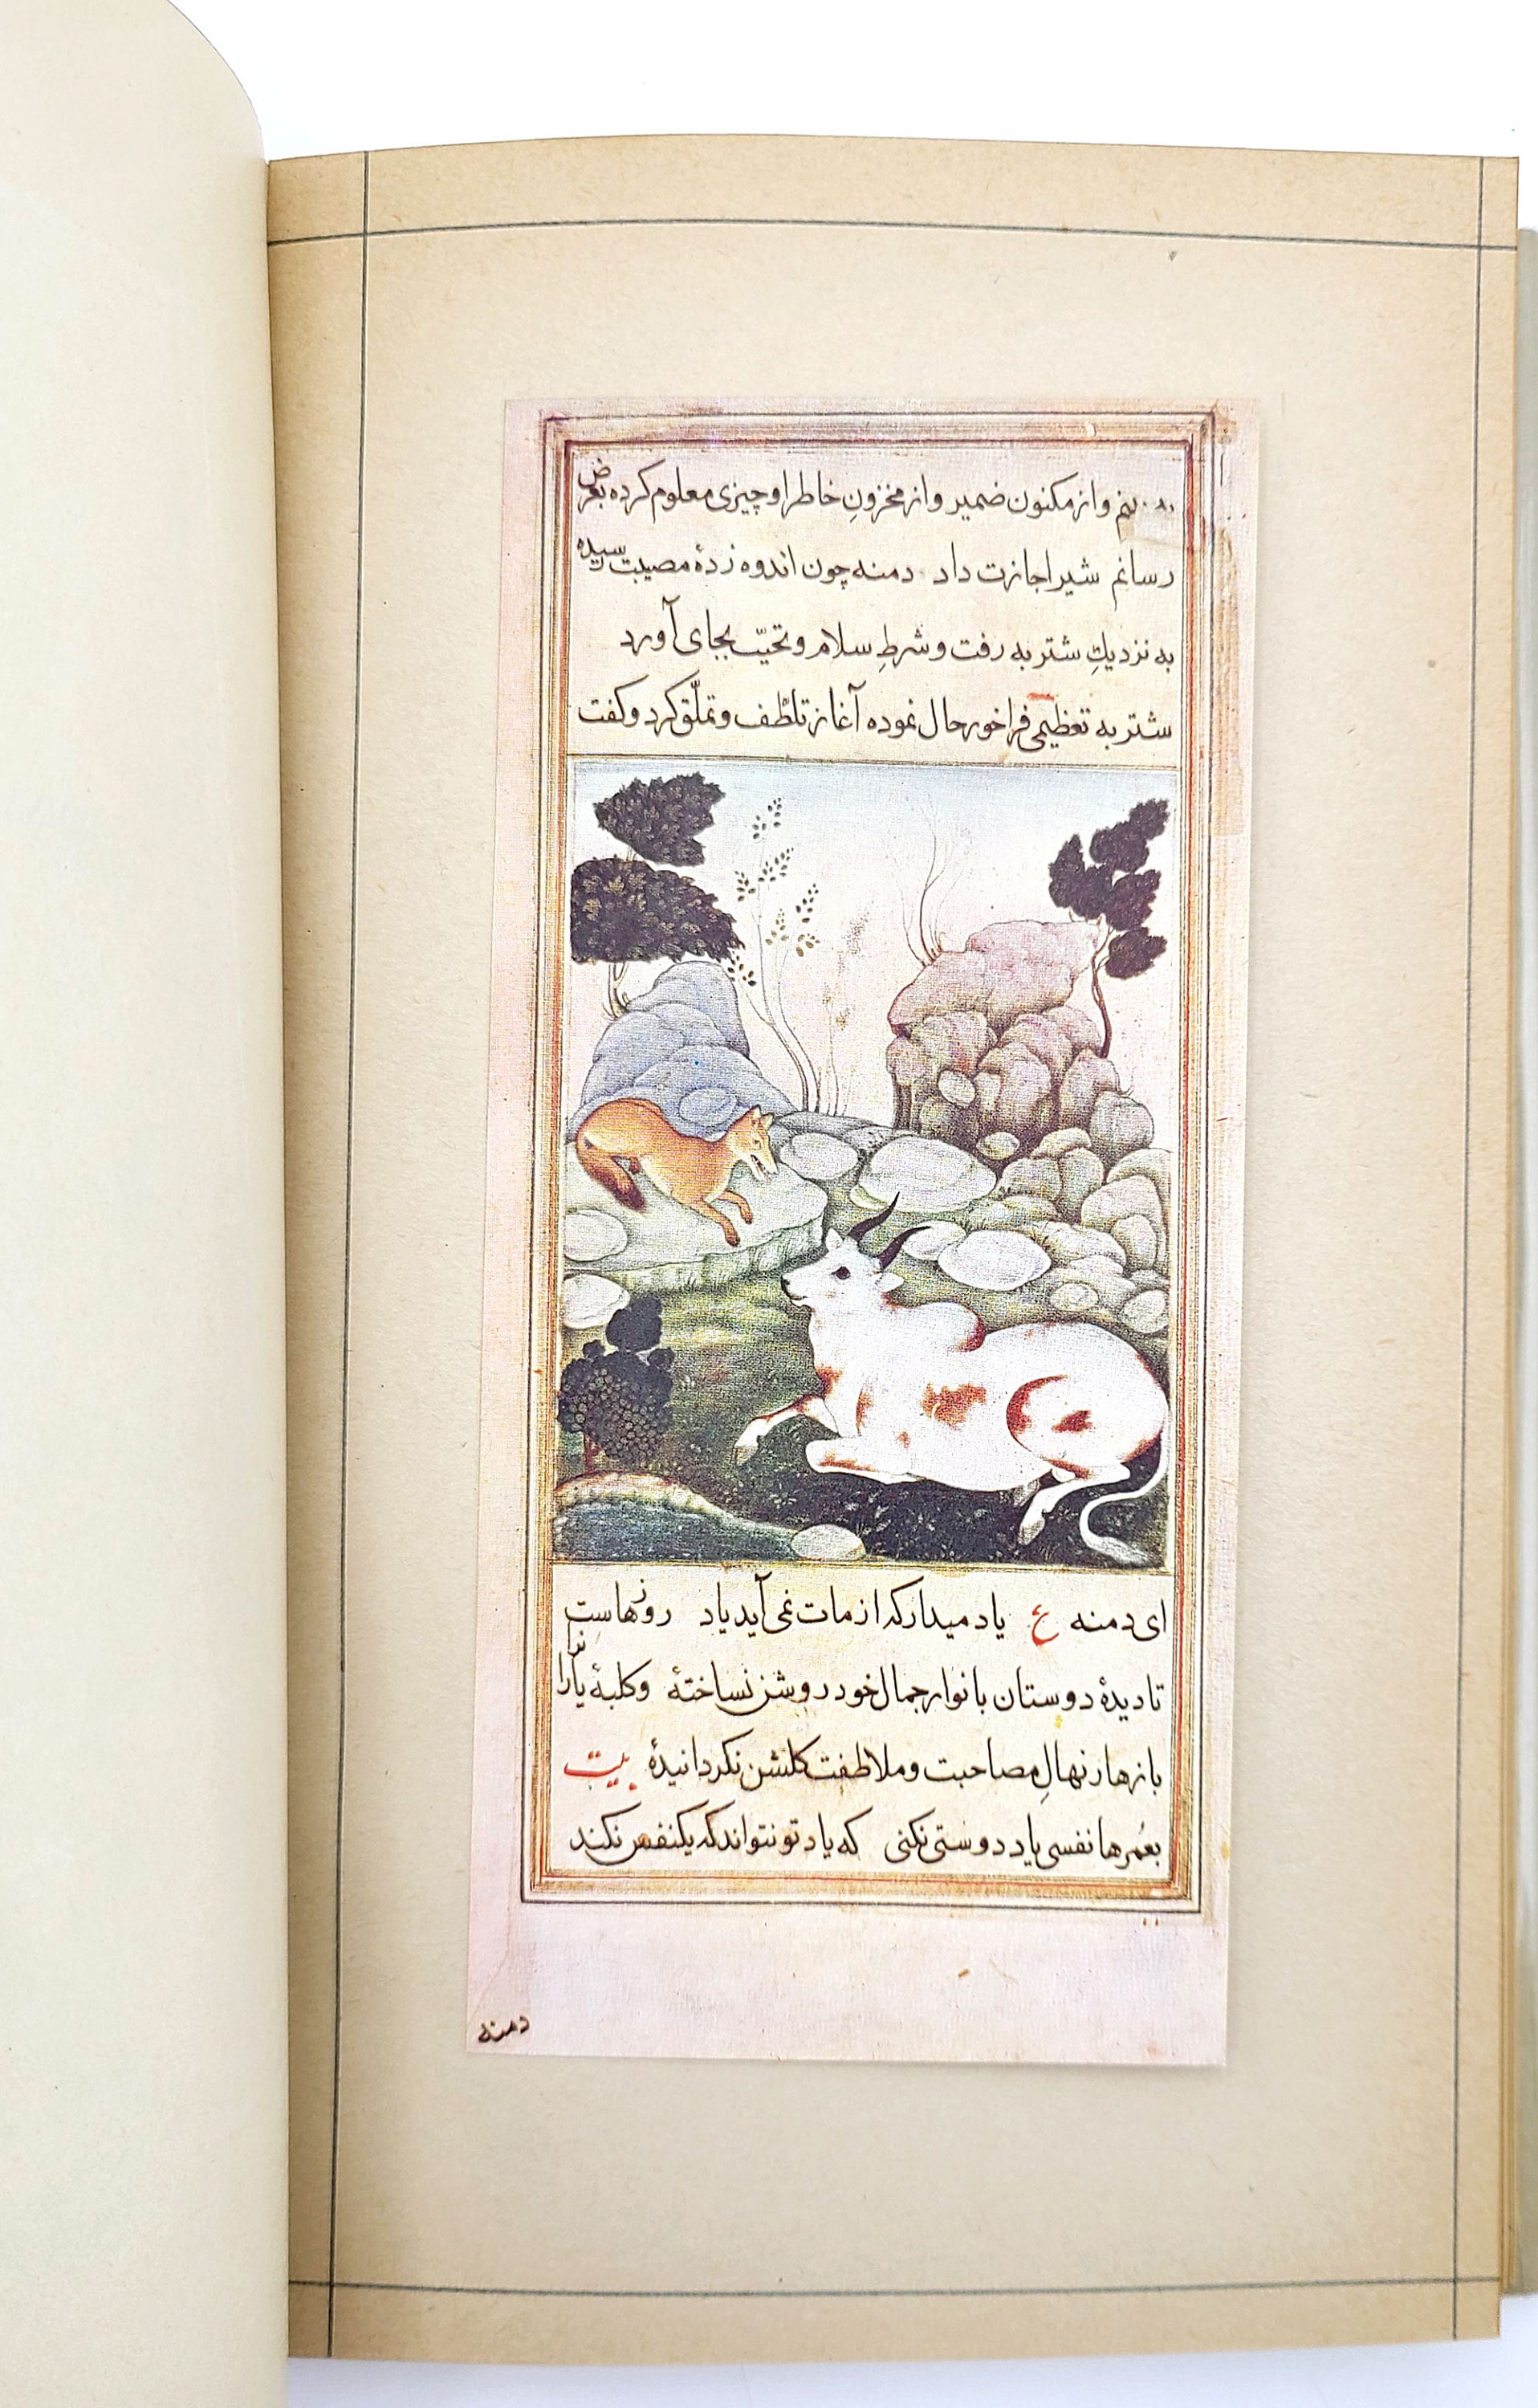 بینم و از مکنون ضمیر و از مخزونِ خاطر او چیزی معلوم کرده بعرض
رسانم شیر اجازت داد دمنه چون اندوه زدهٔ مصیبت رسیده
به نزدیكِ شتربه رفت و شرطِ سلام و تحیّت بجای آورد
شتربه تعظیمی فراخور حال نموده آغاز تلطّف و تملّق کرد و کفت
ای دمنه ع یاد میدار که از مات نمی آید یاد روزهاست
تا دیدهٔ دوستان بانوار جمال خود روشن نساختهٔ و کلبهٔ یارانرا
بازهار نهالِ مصاحبت و ملاطفت کلشن نکردانیدهٔ بیت
بعُمرها نفسی یاد دوستی نکنی که یاد تو نتواند که یکنفس نکند
دمنه